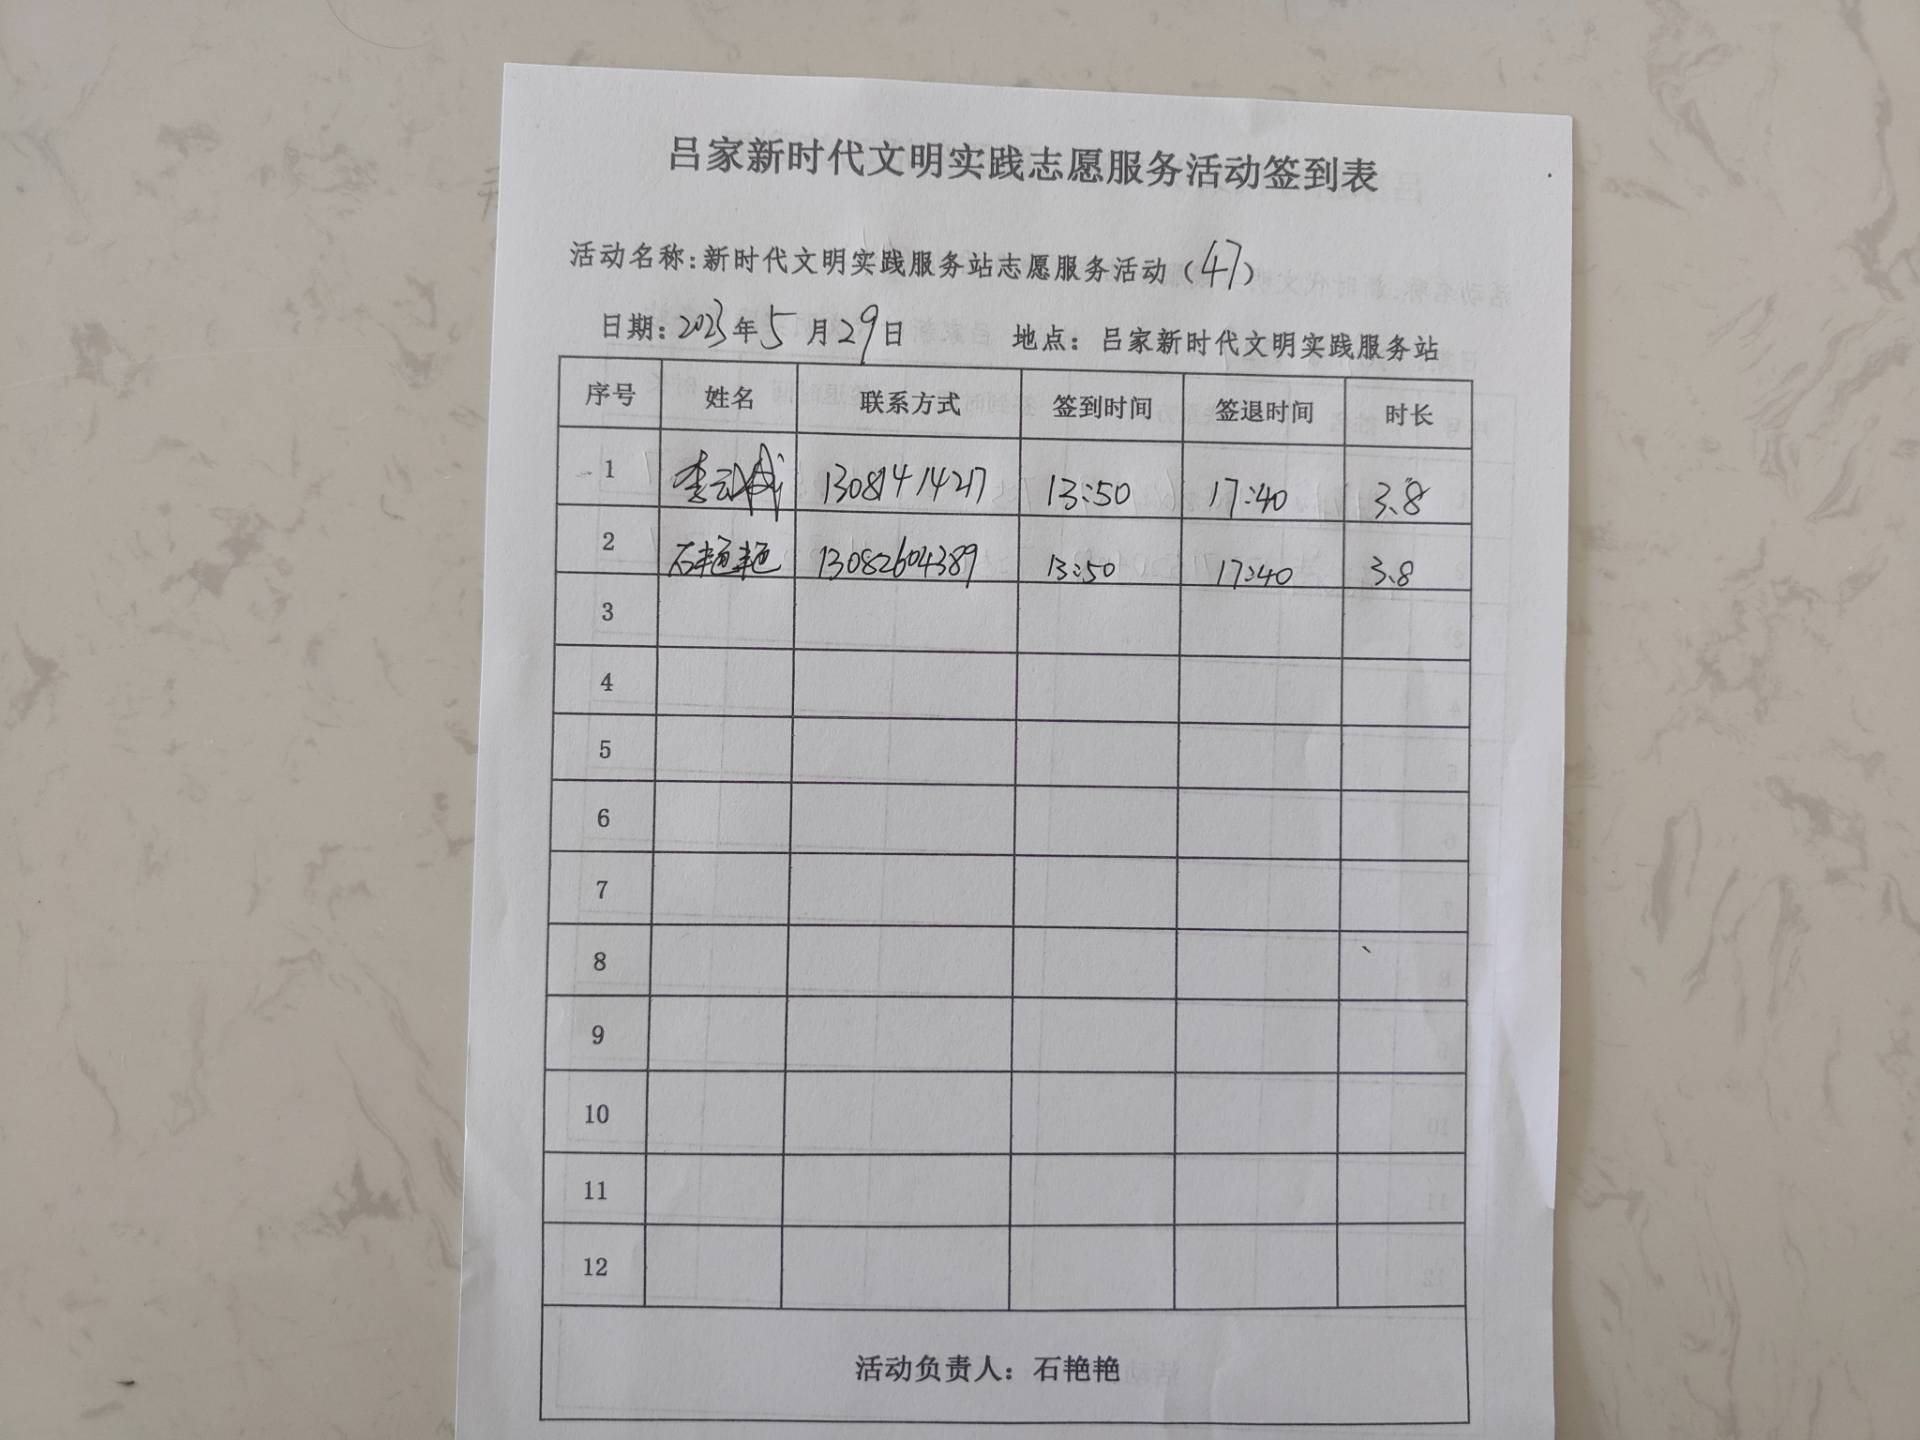 吕家新时代文明实践志愿服务活动签到表
活动名称:新时代文明实践服务站志愿服务活动（47）
日期:2023年5月29日 地点：吕家新时代文明实践服务站
序号 姓名 联系方式 签到时间 签退时间 时长
1 李云 13:50 17:40 3.8
2 石艳艳 13082604389 13:50 17:40 3.8
3
4
5
6
7
8
9
10
11
12
活动负责人：石艳艳